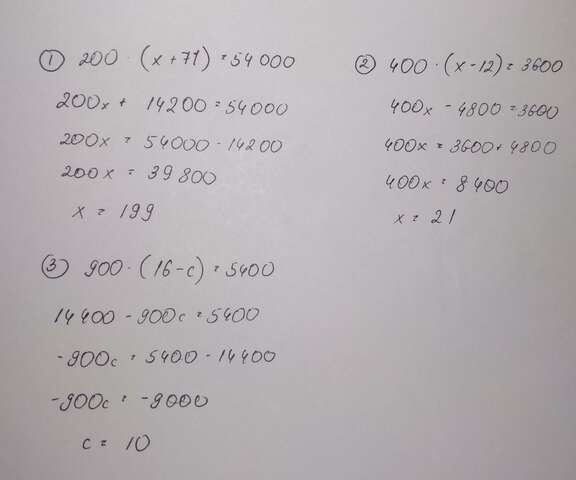 ① 200 · (x + 71) = 54 000
200x + 14200 = 54000
200x = 54000 - 14200
200x = 39 800
x = 199
② 400 · (x - 12) = 3600
400x - 4800 = 3600
400x = 3600 + 4800
400x = 8 400
x = 21
③ 900 · (16 - c) = 5400
14400 - 900c = 5400
-900c = 5400 - 14400
-900c = -9000
c = 10